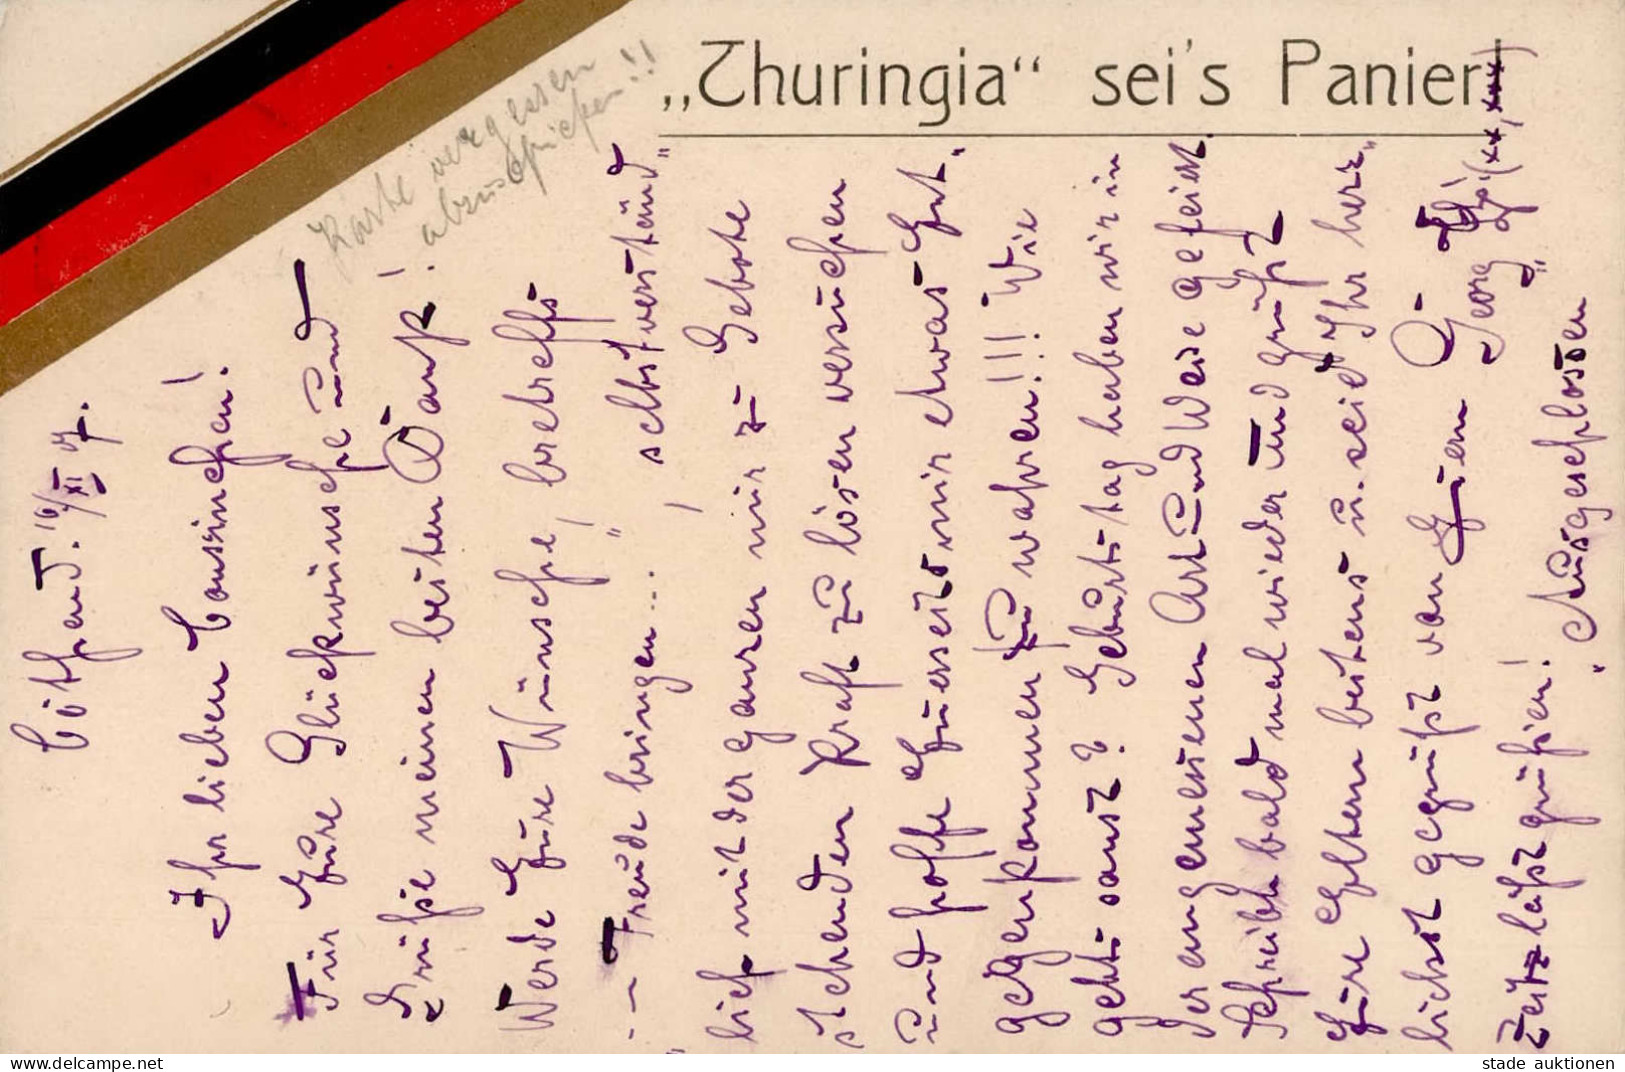 „Thuringia“ sei's Panier!
Karte vergessen
abzuschicken!!
Cöthen, 16/XI 07.
Ihr lieben Cousinchen!
Für Eure Glückwünsche und
Grüße meinen besten Dank!
Werde Eure Wünsche, betreffs
"
... Freude bringen...", selbstverständ„
„lich mit der ganzen mir zu Gebote
stehenden Kraft zu lösen versuchen
und hoffe Euerseits mir etwas Ent„
gegenkommen zu wahren!!! Wie
gehts sonst? Geburtstag haben wir in
der angemessenen Art und Weise gefeiert.
Schreibt bald mal wieder und grüßt
Eure Eltern bestens u. seid Ihr herz„
lichst gegrüßt von Euerm Georg (xx, xxx)
Zeitz läßt grüßen! „Ausgeschlossen“
www.delcampe.net
stade auktionen